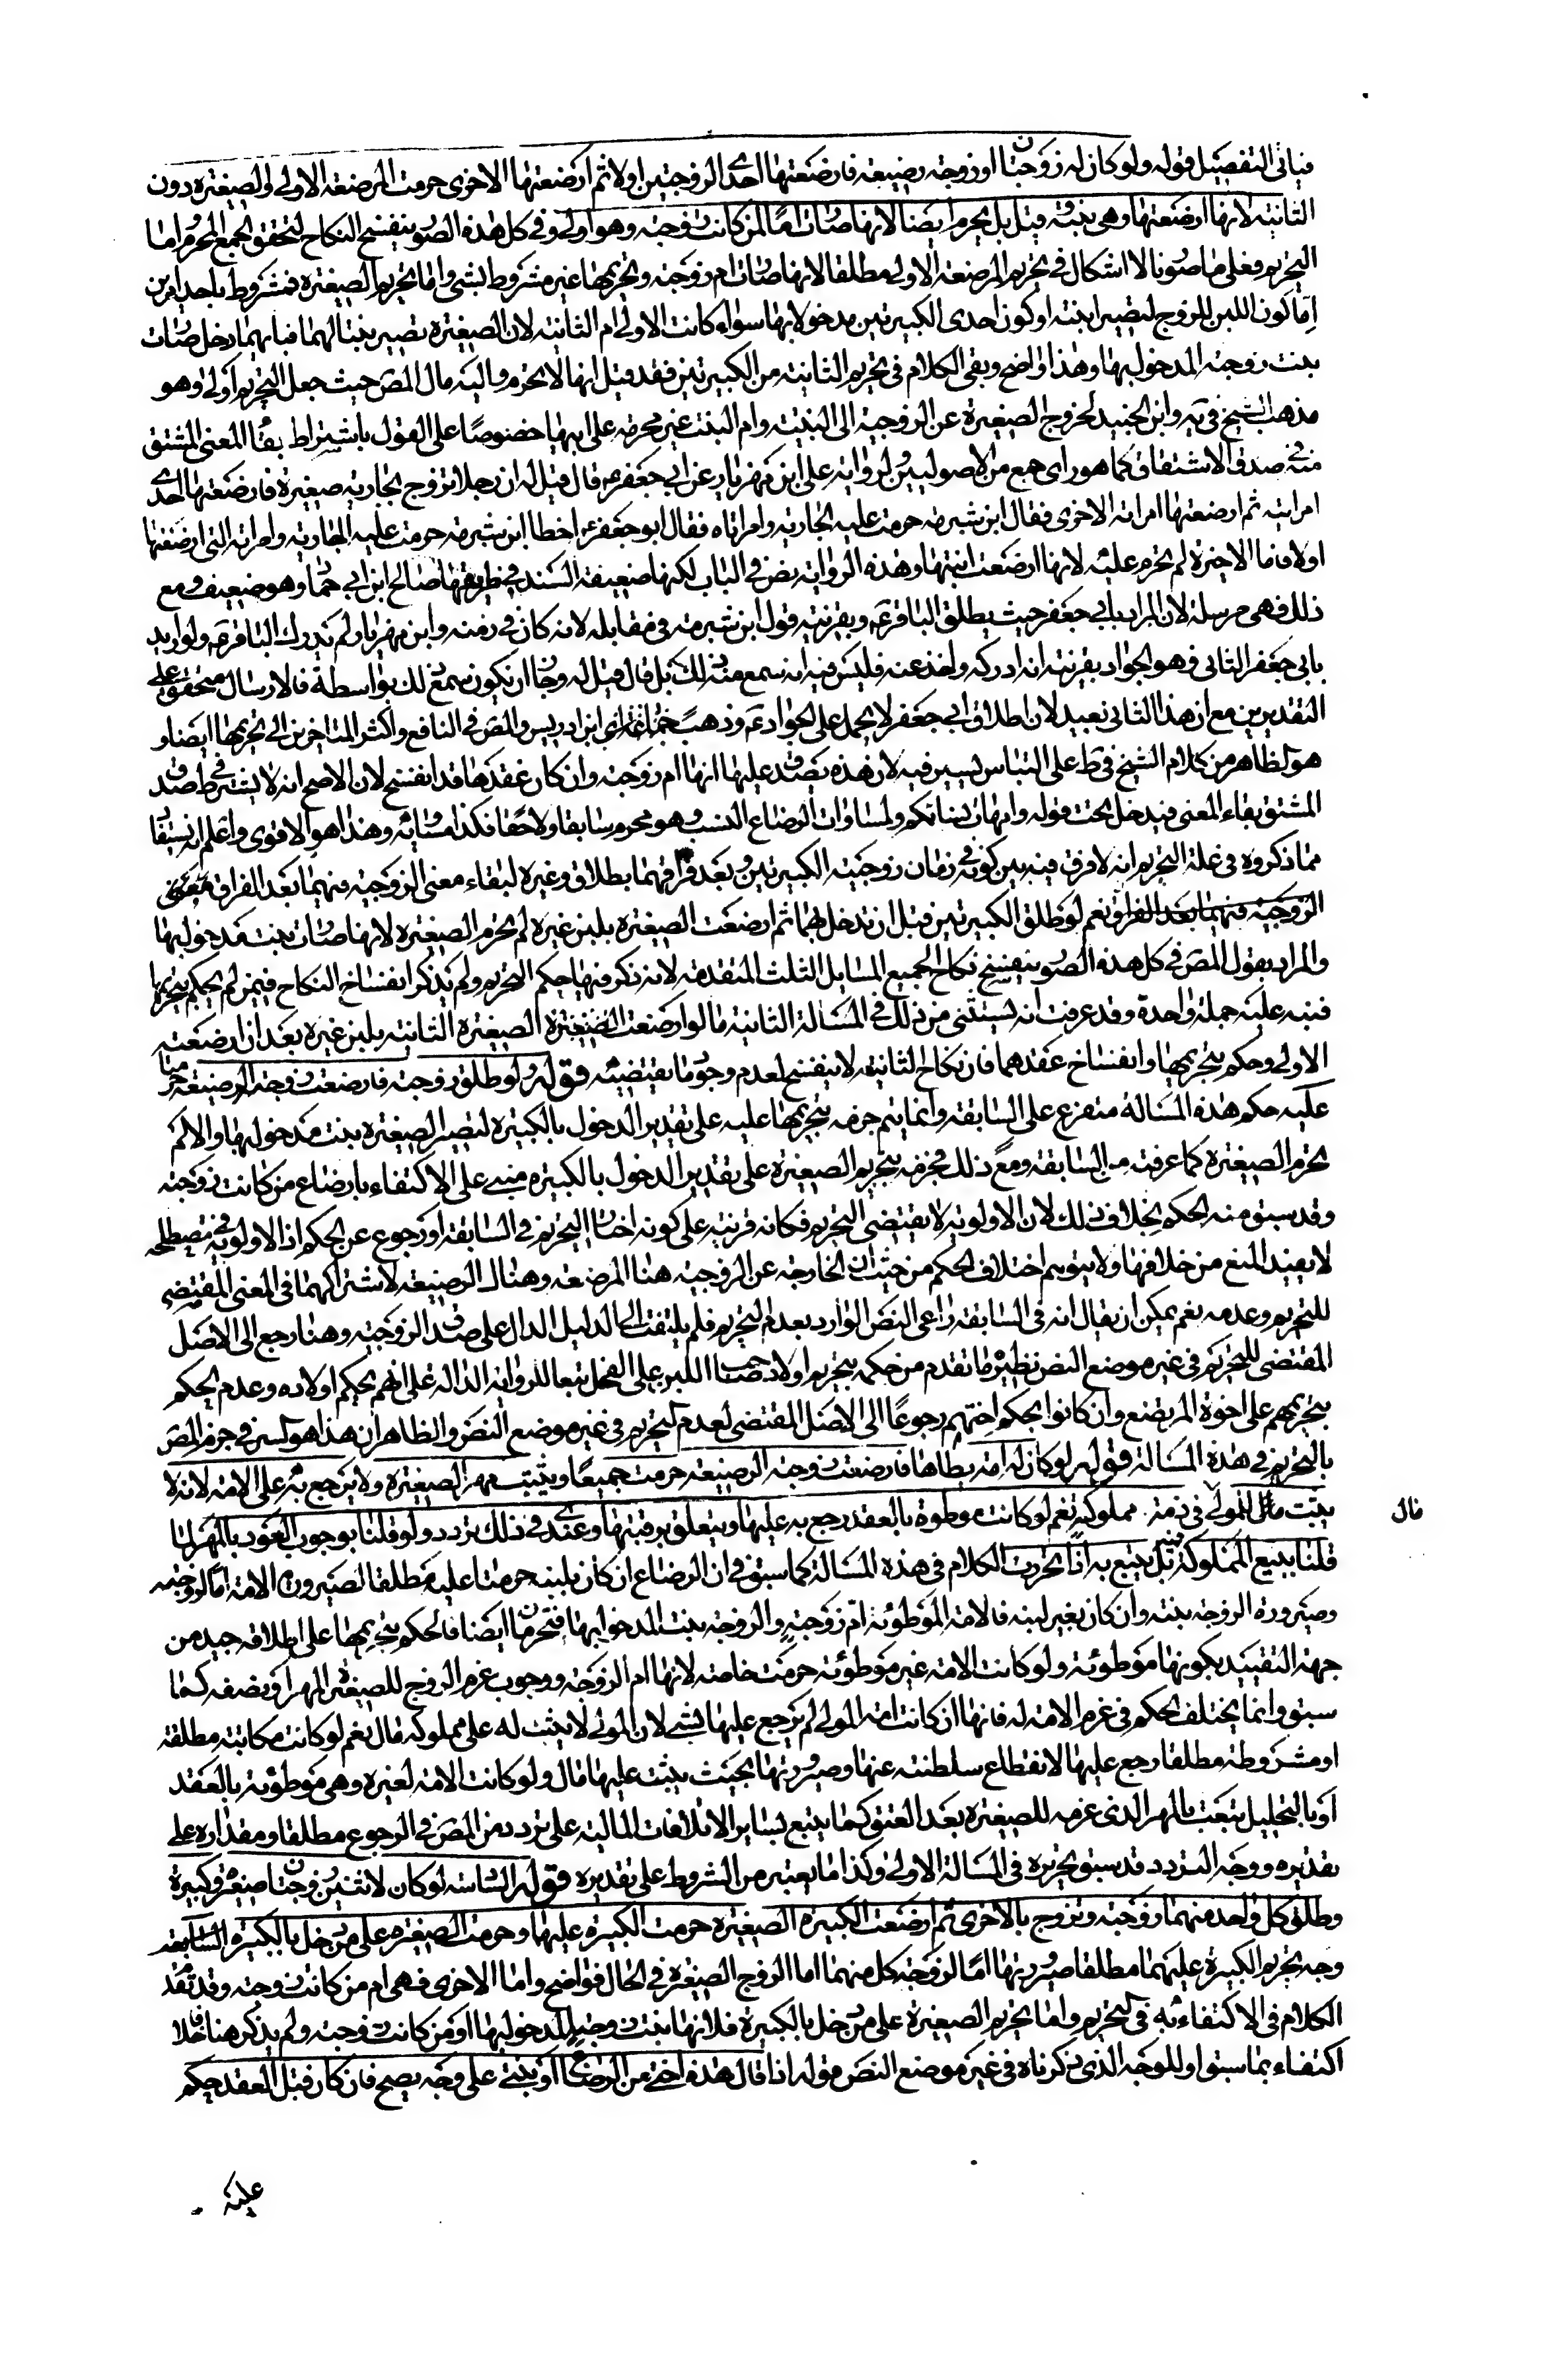 فياتى التفصيل قوله ولو كان له زوجتان او زوجة رضيعة فارضعتها احدى الزوجتين اولا ثم ارضعتها الاخرى حرمت المرضعة الاولى والصغيرة دون
الثانية لانها ارضعتها وهى بنته وقيل بل يحرم ايضا لانها صارت اما لمن كانت زوجته وهو اولى وفى كل هذه الصور ينفسخ النكاح لتحقق الجمع المحرم اما
التحريم فعلى ما صورناه لا اشكال فى تحريم المرضعة الاولى مطلقا لانها صارت ام زوجته وتحريمها غير مشروط بشئ واما تحريم الصغيرة فمشروط باحد امرين
اما كون اللبن للزوج لتصير ابنته او كون احدى الكبيرتين مدخولا بها سواء كانت الاولى ام الثانية لان الصغيرة تصير بنتا لهما فبايهما دخل صارت
بنت زوجته المدخول بها وهذا واضح وبقى الكلام فى تحريم الثانية من الكبيرتين فقد قيل انها لا تحرم واليه مال المص حيث جعل التحريم اولى وهو
مذهب الشيخ فى يه وابن الجنيد لخروج الصغيرة عن الزوجية الى البنتية وام البنت غير محرمة على ابيها خصوصا على القول باشتراط بقاء المعنى المشتق
منه فى صدق الاشتقاق كما هو راى جمع من الاصوليين ولرواية على ابن مهزيار عن ابى جعفر ع قال قيل له ان رجلا تزوج بجارية صغيرة فارضعتها احدى
امراتيه ثم ارضعتها امراته الاخرى فقال ابن شبرمة حرمت عليه الجارية وامراتاه فقال ابو جعفر ع اخطا ابن شبرمة حرمت عليه الجارية وامراته التى ارضعتها
اولا فاما الاخيرة لم تحرم عليه لانها ارضعت ابنتها وهذه الرواية نص فى الباب لكنها ضعيفة السند فى طريقها صالح ابن ابى حماد وهو ضعيف ومع
ذلك فهى مرسلة لان المراد بابى جعفر حيث يطلق الباقر ع وبقرينة قول ابن شبرمة فى مقابله لانه كان فى زمنه وابن مهزيار لم يدرك الباقر ع ولو اريد
بابى جعفر الثانى وهو الجواد بقرينة انه ادركه واخذ عنه فليس فيه انه سمع منه ذلك بل قال قيل له وجاز ان يكون سمع ذلك بواسطة فالارسال متحقق على
التقديرين مع ان هذا الثانى بعيد لان اطلاق ابى جعفر لا يحمل على الجواد ع وذهب جماعة ابن ادريس والمص فى النافع واكثر المتاخرين الى تحريمها ايضا و
هو الظاهر من كلام الشيخ فى ط على التباس يسير فيه لان هذه يصدق عليها انها ام زوجته وان كان عقدها قد انفسخ لان الاصح انه لا يشترط فى صدق
المشتق بقاء المعنى فيدخل تحت قوله وامهات نسائكم ولمساواة الرضاع النسب وهو محرم سابقا ولاحقا فكذا مساويه وهذا هو الاقوى واعلم انه يستفاد
مما ذكروه فى علة التحريم انه لا فرق فيه بين كونه فى زمان زوجية الكبيرتين وبعد فراقهما بطلاق وغيره لبقاء معنى الزوجية فيهما بعد الفراق معنى
الزوجية فيهما بعد الفراق نعم لو طلق الكبيرتين قبل ان تدخل بهما ثم ارضعت الصغيرة بلبن غيره لم تحرم الصغيرة لانها صارت بنت غير مدخول بها
والمراد بقول المص فى كل هذه الصور ينفسخ نكاح الجميع المسايل الثلث المتقدمة لانه ذكر فيها حكم التحريم ولم يذكر انفساخ النكاح فيمن لم يحكم بتحريمها
فنبه عليه جملة واحدة وقد عرفت انه يستثنى من ذلك فى المسالة الثانية ما لو ارضعت الصغيرة الصغيرة الثانية بلبن غيره بعد ان ارضعت
الاولى وحكم بتحريمها وانفساخ عقدهما فان نكاح الثانية لا ينفسخ لعدم وجود ما يقتضيه قوله ولو طلق زوجته فارضعت زوجته الرضيعة حرمتا
عليه حكم هذه المسالة متفرع على السابقة وانما يتم جزمه بتحريمها عليه على تقدير الدخول بالكبيرة لتصير الصغيرة بنت مدخول بها والا لم
تحرم الصغيرة كما عرفته من السابقة ومع ذلك فجزمه بتحريم الصغيرة على تقدير الدخول بالكبيرة مبنى على الاكتفاء بارضاع من كانت زوجته
وقد سبق منه الحكم بخلاف ذلك لان الاولوية لا يقتضى التحريم فكانه قرينة على كونه اختار التحريم فى السابقة او رجوع عن الحكم اذ الاولوية فى مصطلحه
لا يفيد المنع من خلافها ولا يتوهم اختلاف الحكم من حيث ان الخارجة عن الزوجية هنا المرضعة وهناك الرضيعة لاشتراكهما فى المعنى المقتضى
للتحريم وعدمه نعم يمكن ان يقال انه فى السابقة راعى النص الوارد بعدم التحريم فلم يلتفت الى الدليل الدال على صدق الزوجية وهنا رجع الى الاصل
المقتضى للتحريم فى غير موضع النص نظير ما تقدم من حكمه بتحريم اولاد صاحب اللبن على الفحل تبعا للرواية الدالة على انهم بحكم اولاده وعدم الحكم
بتحريمهم على اخوة المرتضع وان كانوا بحكم اختهم رجوعا الى الاصل المقتضى لعدم التحريم فى غير موضع النص والظاهر ان هذا هو السر فى جزم المص
بالتحريم فى هذه المسالة قوله لو كان له امة يطاها فارضعت زوجته الرضيعة حرمت جميعا ويثبت مهر الصغيرة ولا يرجع به على الامة لانه لا
يثبت مال للمولى فى ذمة مملوكه نعم لو كانت موطوة بالعقد رجع به عليها ويتعلق برقبتها وعندى فى ذلك تردد ولو قلنا بوجوب العود بالمهر لما
قلنا ببيع المملوكة فيه بل يتبع به اذا تحررت الكلام فى هذه المسالة كما سبق فى ان الرضاع ان كان بلبنه حرمتا عليه مطلقا لصيرورة الامة اما لزوجته
وصيرورة الزوجة بنته وان كان بغير لبنه فالامة الموطوئة ام زوجته والزوجة بنت المدخول بها فتحرمان ايضا فالحكم بتحريمها على اطلاقه جيد من
جهة التقييد بكونها موطوئة ولو كانت الامة غير موطوئة حرمت خاصة لانها ام الزوجة ووجوب غرم الزوج للصغيرة المهر او نصفه كما
سبق وانما يختلف الحكم فى غرم الامة له فانها ان كانت امة المولى لم يرجع عليها بشئ لان المولى لا يثبت له على مملوكه مال نعم لو كانت مكاتبة مطلقة
او مشروطة مطلقا رجع عليها لانقطاع سلطنته عنها وصيرورتها بحيث يثبت عليها مال ولو كانت الامة لغيره وهى موطوئة بالعقد
او بالتحليل يتبعت بالمهر الذى غرمه للصغيرة بعد العتق كما يتبع لساير الاتلافات المالية على تردد من المص فى الرجوع مطلقا ومقداره على
تقديره ووجه التردد قد سبق تحريره فى المسالة الاولى وكذا ما يعتبر من الشروط على تقديره قوله السادسة لو كان لاثنين زوجتان صغيرة وكبيرة
وطلق كل واحد منهما زوجته وتزوج بالاخرى ثم ارضعت الكبيرة الصغيرة حرمت الكبيرة عليهما وحرمت الصغيرة على من دخل بالكبيرة السابعة
وجه تحريم الكبيرة عليهما مطلقا صيرورتها اما لزوجة كل منهما اما الزوج الصغيرة فى الحال فواضح واما الاخرى فهى ام من كانت زوجته وقد تقدم
الكلام فى الاكتفاء به فى التحريم واما تحريم الصغيرة على من دخل بالكبيرة فلانها بنت زوجته المدخول بها او من كانت زوجته ولم يذكر هنا خلافا
اكتفاء بما سبق او للوجه الذى ذكرناه فى غير موضع النص قوله اذا قال هذه اختى من الرضاع او بنتى على وجه يصح فان كان قبل العقد حكم
فال
عليه